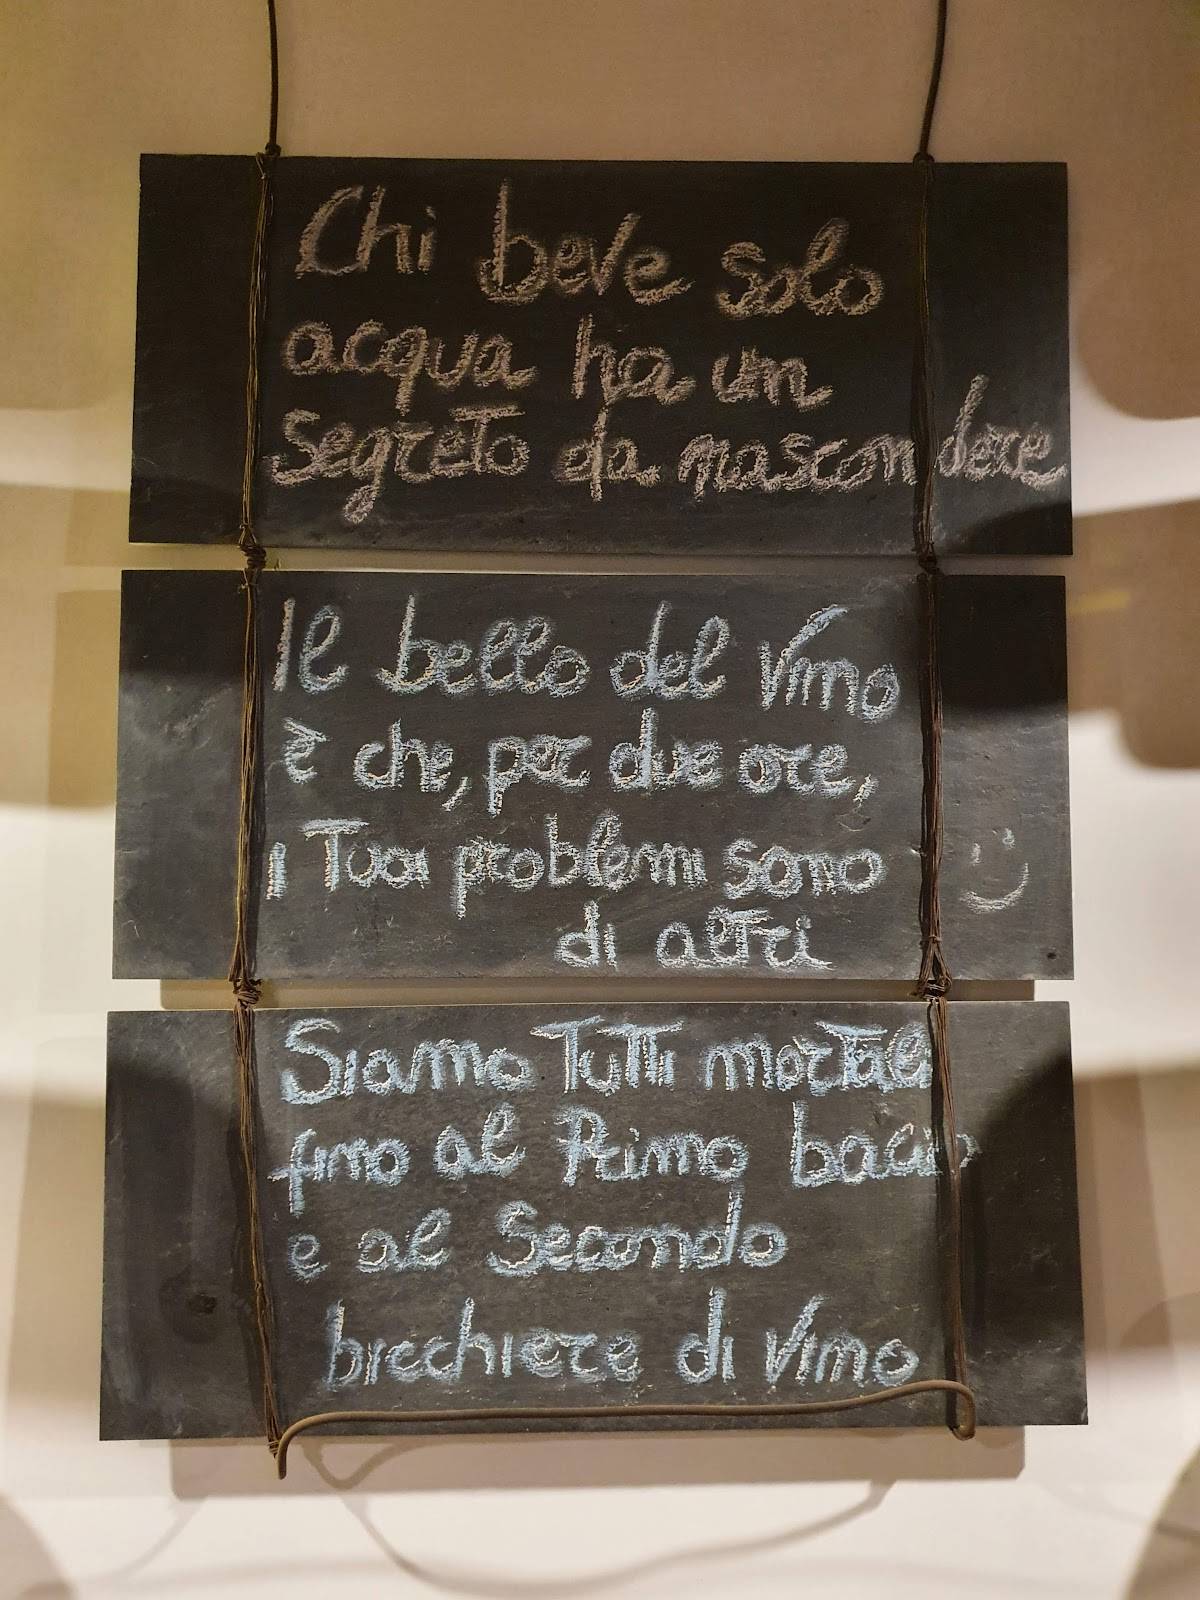 Chi beve solo
acqua ha un
segreto da nascondere
Il bello del vino
è che, per due ore,
i Tuoi problemi sono
di altri
Siamo Tutti mortali
fino al Primo bacio
e al Secondo
bicchiere di Vino